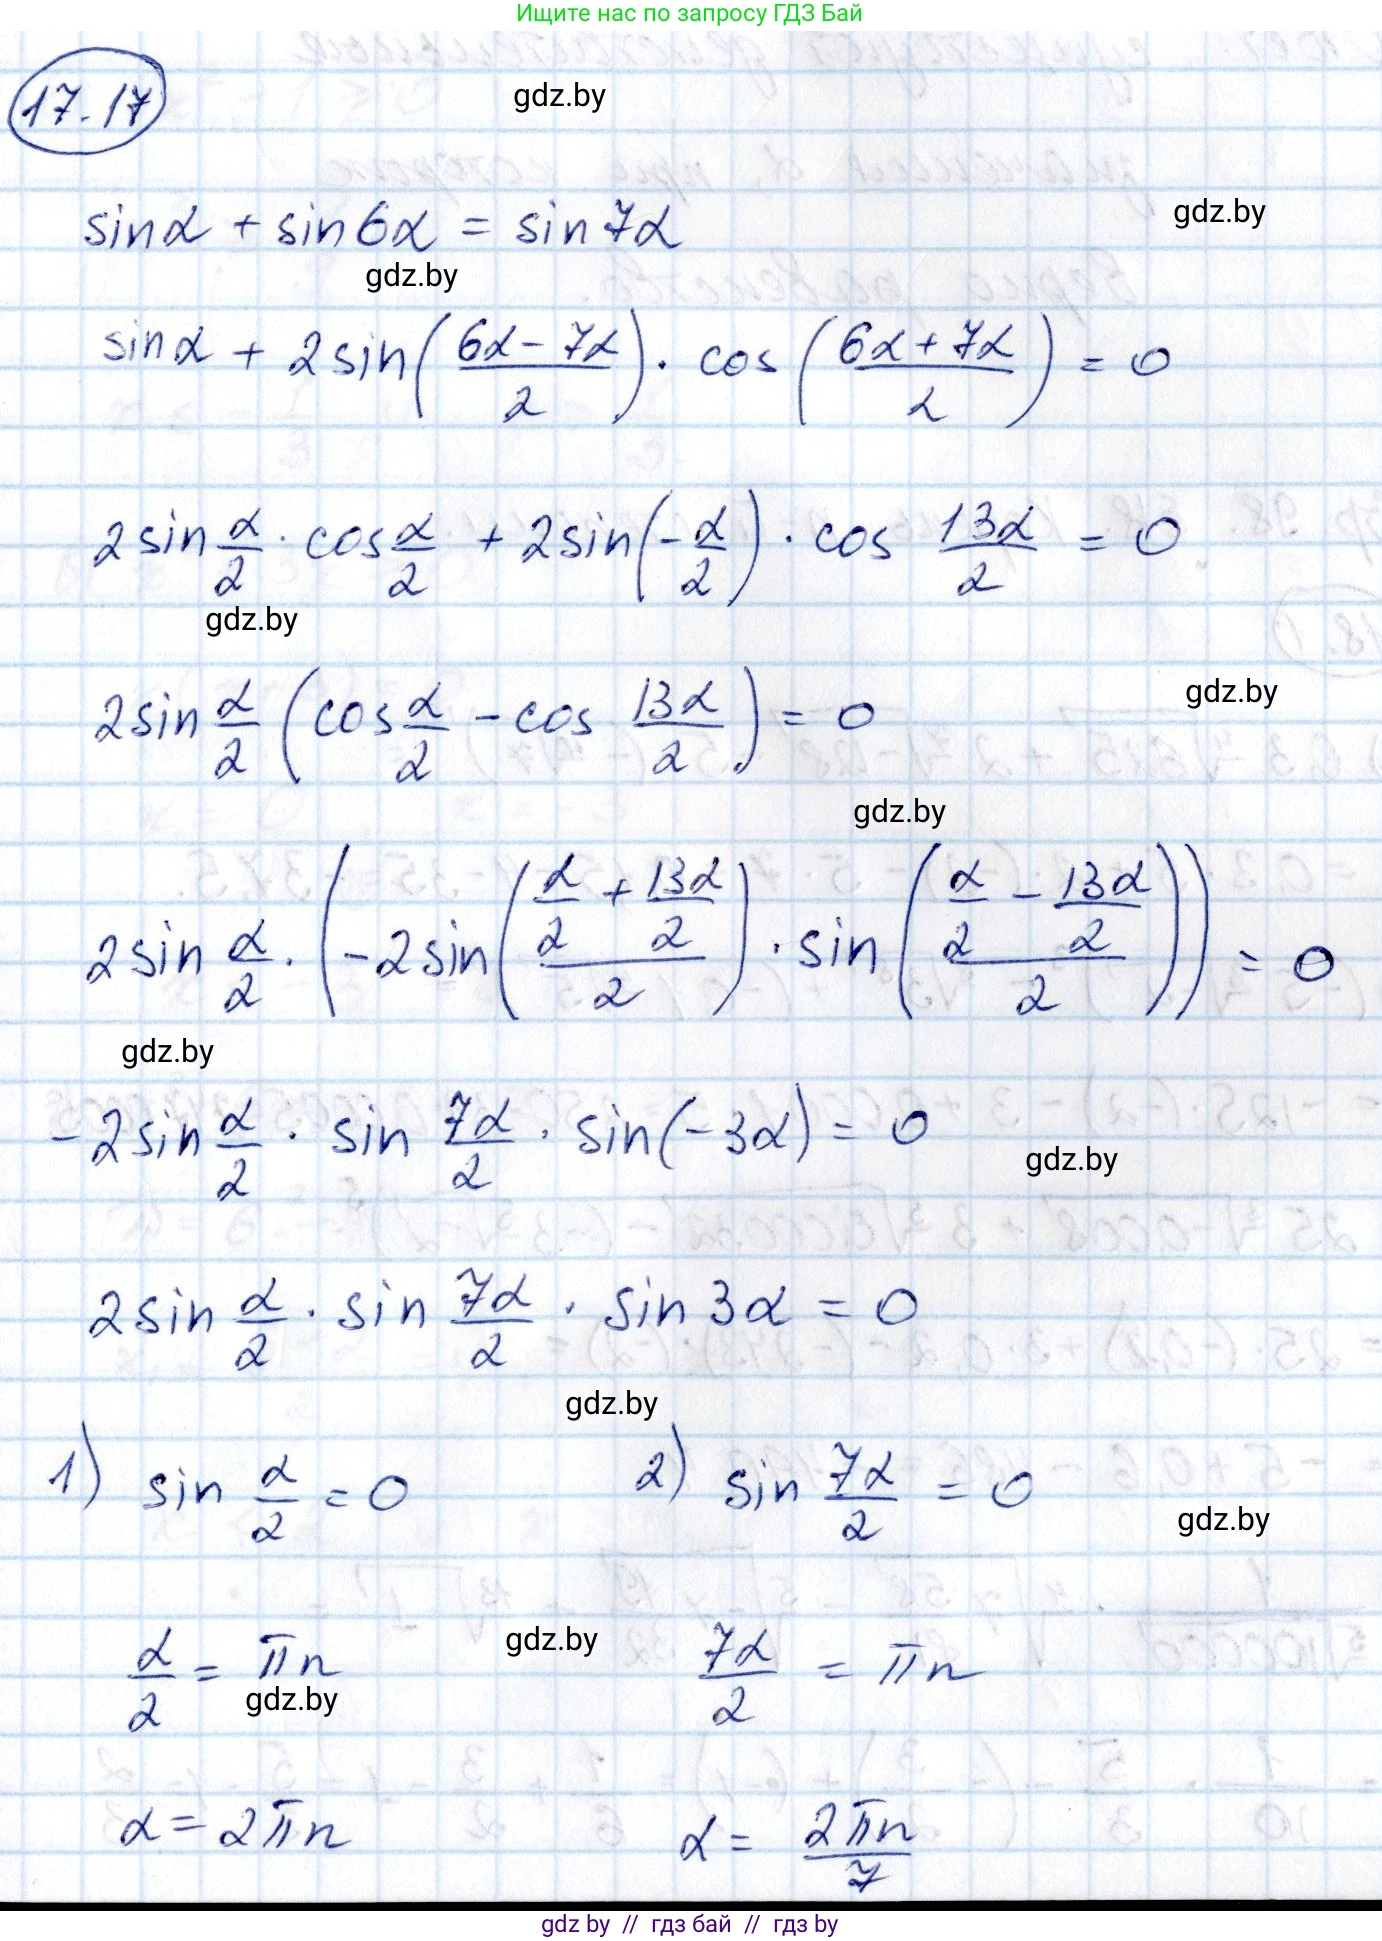 Ищите нас по запросу ГДЗ Бай
17.17
gdz.by
sinα + sin6α = sin7α
gdz.by
gdz.by
sinα + 2sin((6α - 7α)/2) · cos((6α + 7α)/2) = 0
2sin α/2 · cos α/2 + 2sin(-α/2) · cos 13α/2 = 0
gdz.by
2sin α/2 (cos α/2 - cos 13α/2) = 0
gdz.by
gdz.by
2sin α/2 · (-2sin((α/2 + 13α/2)/2) · sin((α/2 - 13α/2)/2)) = 0
gdz.by
-2sin α/2 · sin 7α/2 · sin(-3α) = 0
gdz.by
2sin α/2 · sin 7α/2 · sin3α = 0
gdz.by
1) sin α/2 = 0 2) sin 7α/2 = 0
gdz.by
gdz.by
α/2 = πn 7α/2 = πn
gdz.by
α = 2πn α = 2πn/7
gdz by // гдз бай // гдз by